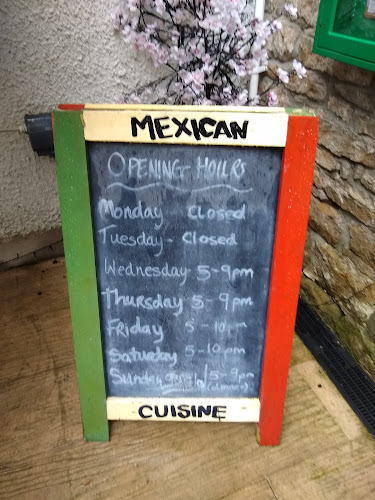 MEXICAN
OPENING-HOURS
Monday Closed
Tuesday - Closed
Wednesday 5-9pm
Thursday 5-9pm
Friday 5-10pm
Saturday 5-10pm
Sunday 5-9pm
CUISINE